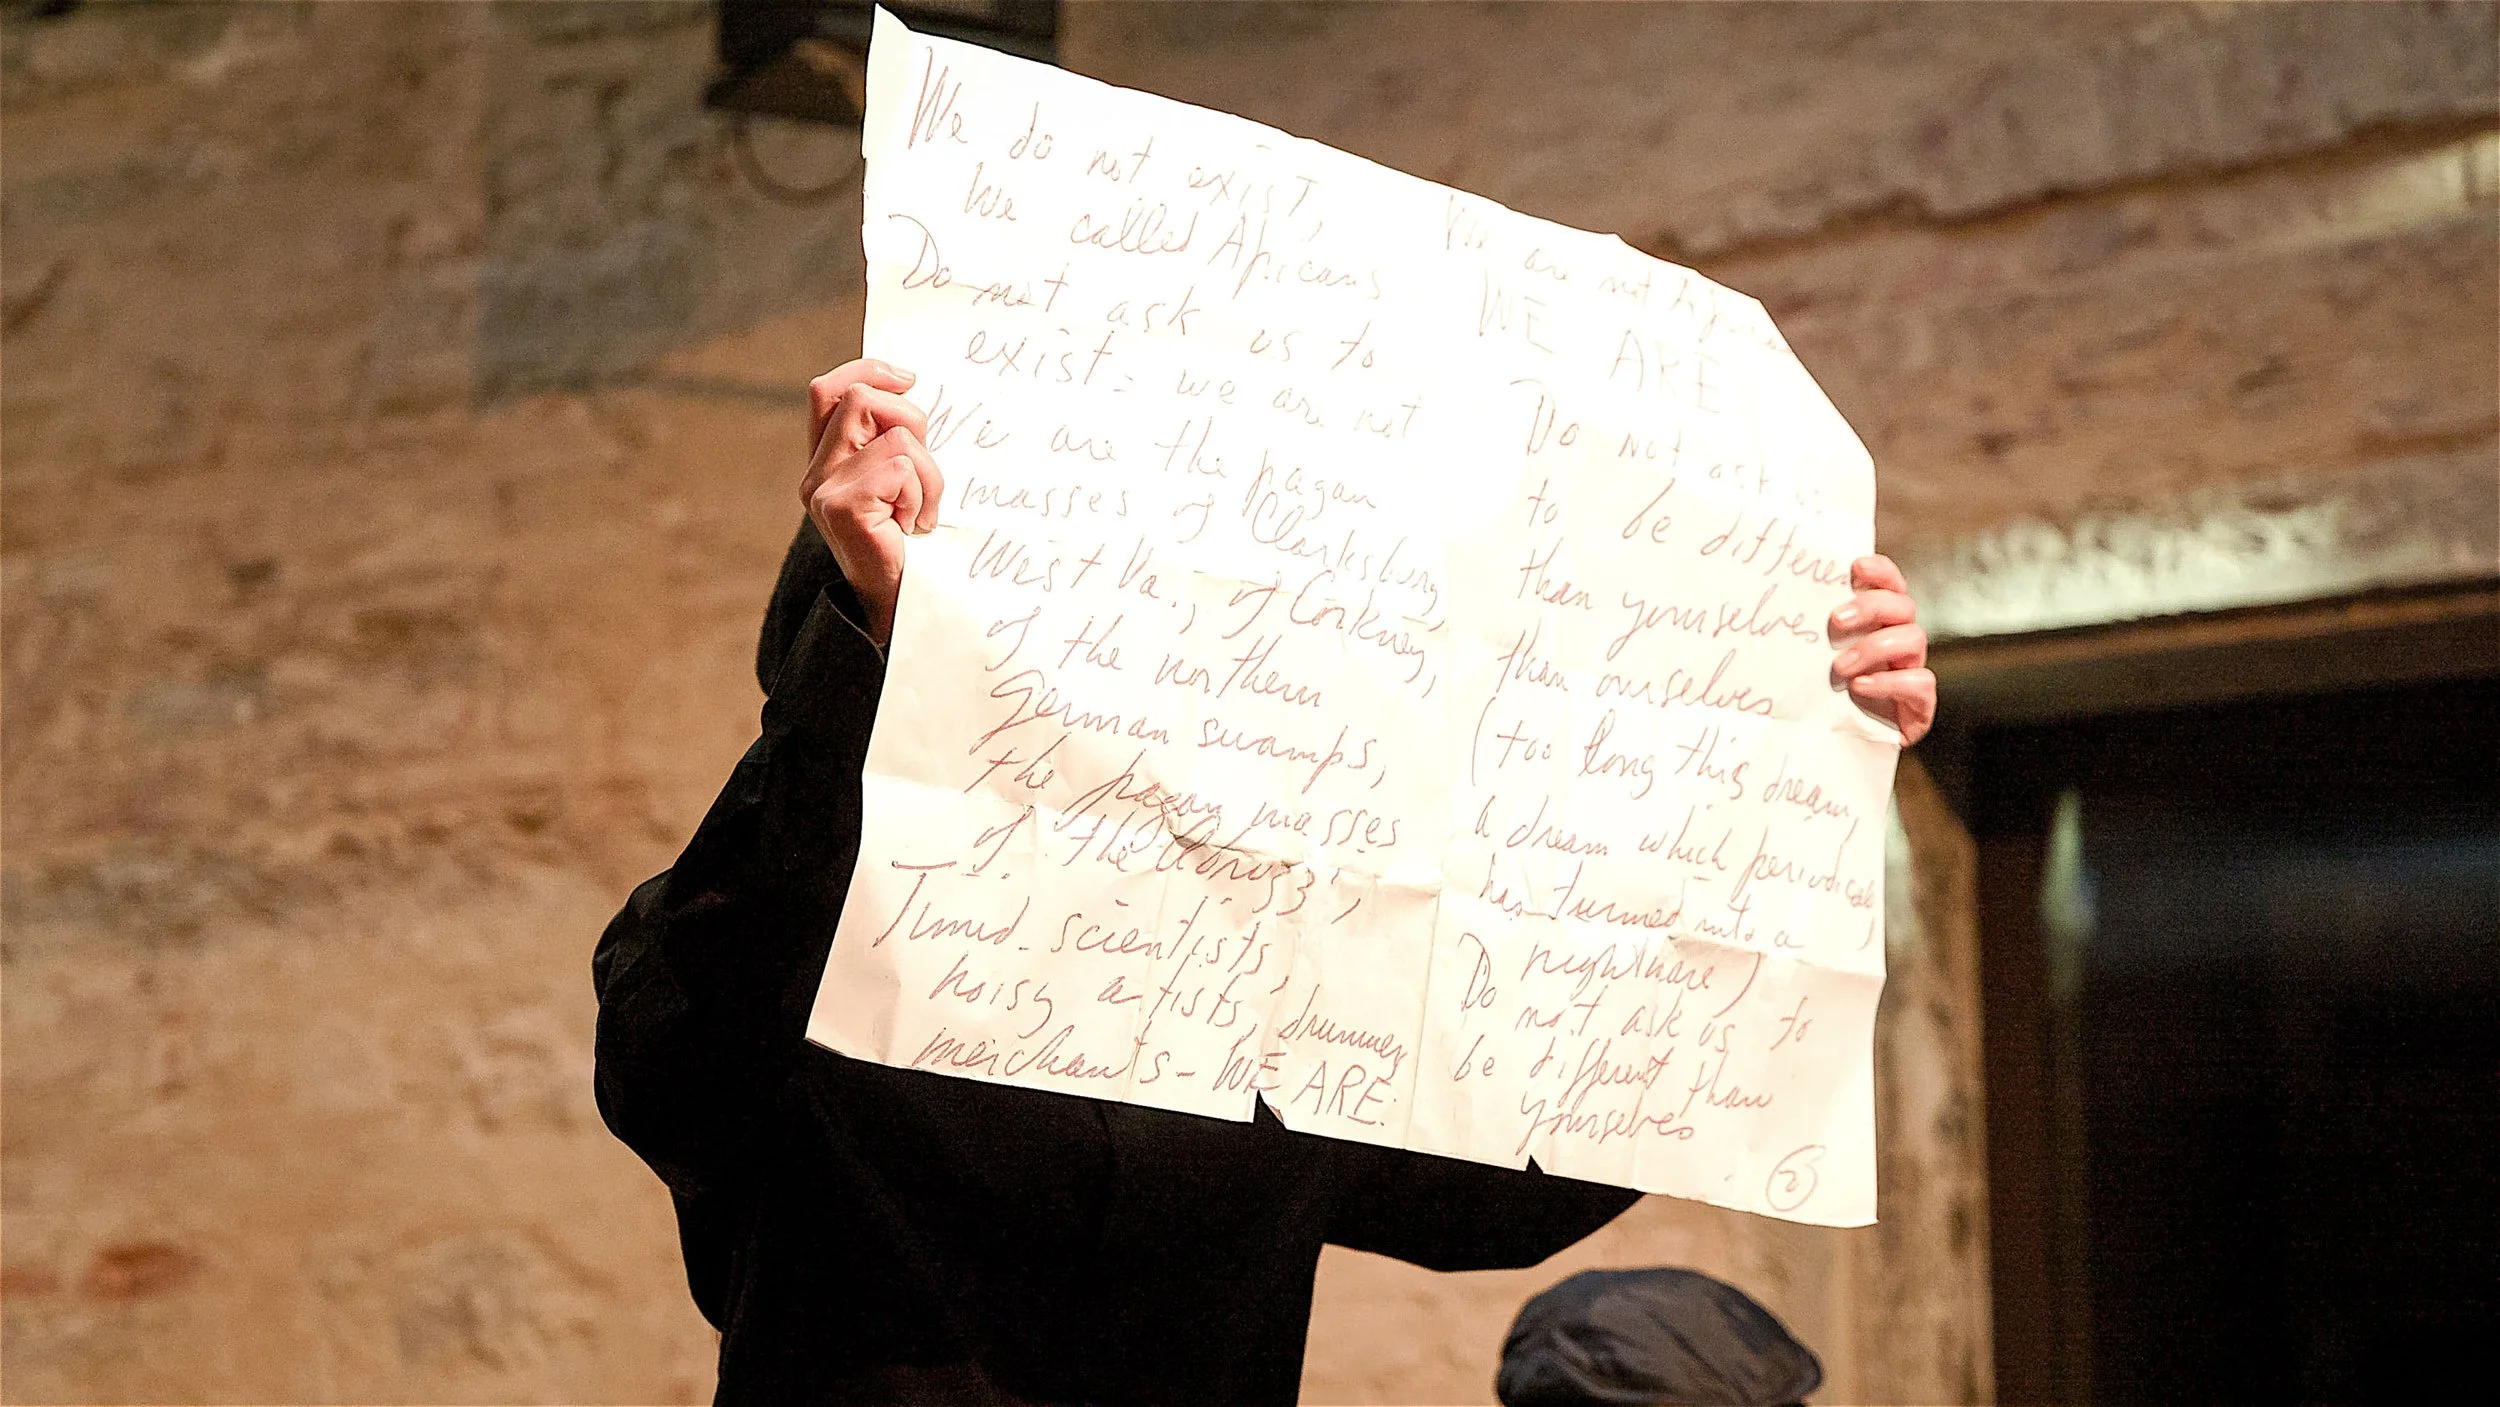 We do not exist,
We called Apicans
Do not ask us to
exist - we are not
We are the pagan
masses of Clarksburg,
West Va., of Corkney,
of the northern
German swamps,
the pagan masses
of the Abruzzi,
Timid scientists,
noisy artists, drummer
merchants - WE ARE.
We are not
WE ARE
Do not ask
to be different
than yourselves
than ourselves
(too long this dream,
a dream which periodically
has turned into a
nightmare)
Do not ask us to
be different than
yourselves
2